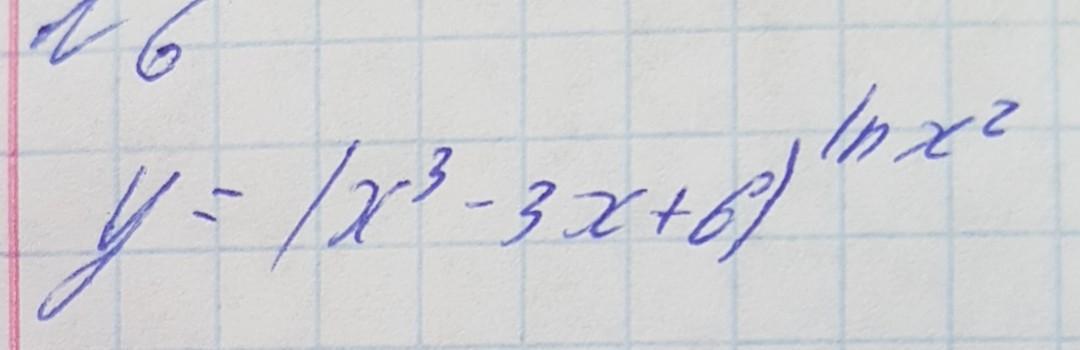 № 6
y = (x³ - 3x + 6)^ln x²